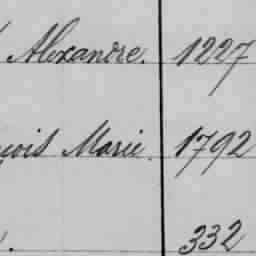 Alexandre. 1227
çois Marie. 1792
332